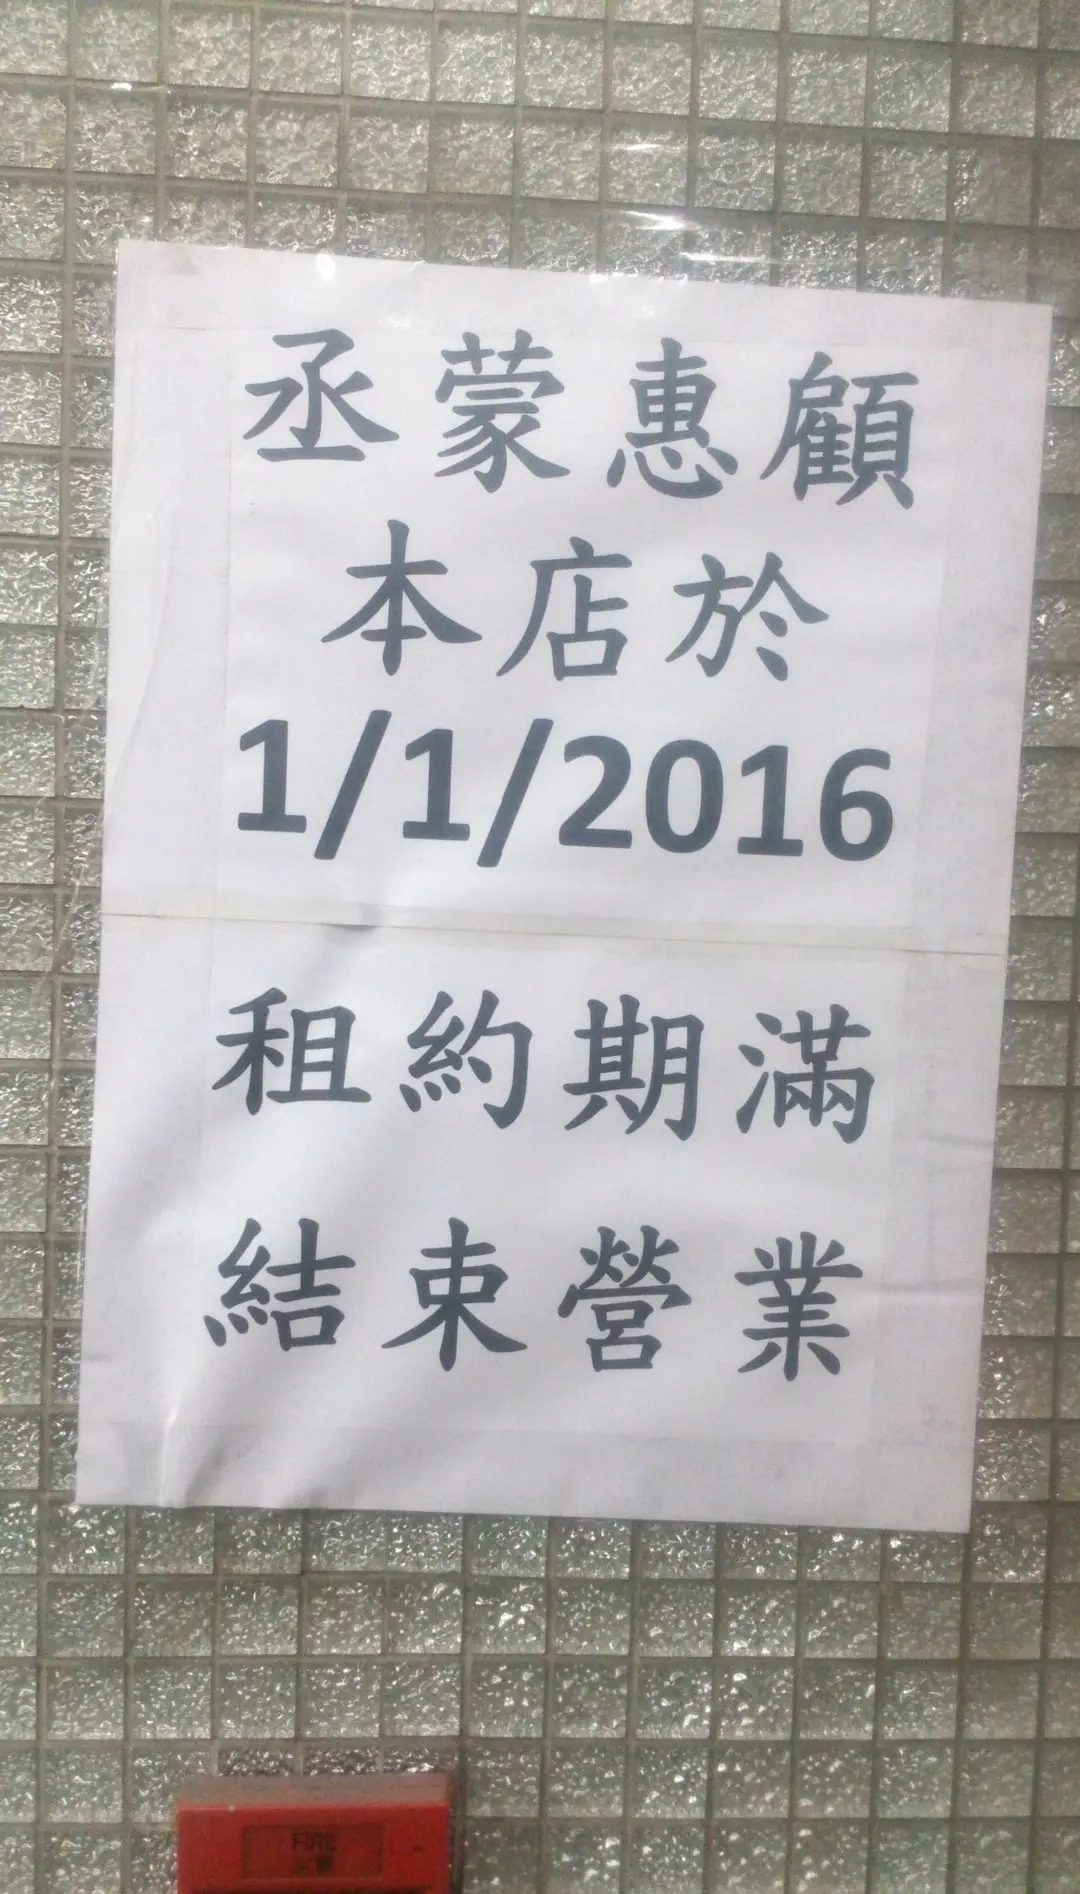 丞蒙惠顧
本店於
1/1/2016
租約期滿
結束營業
FIRE